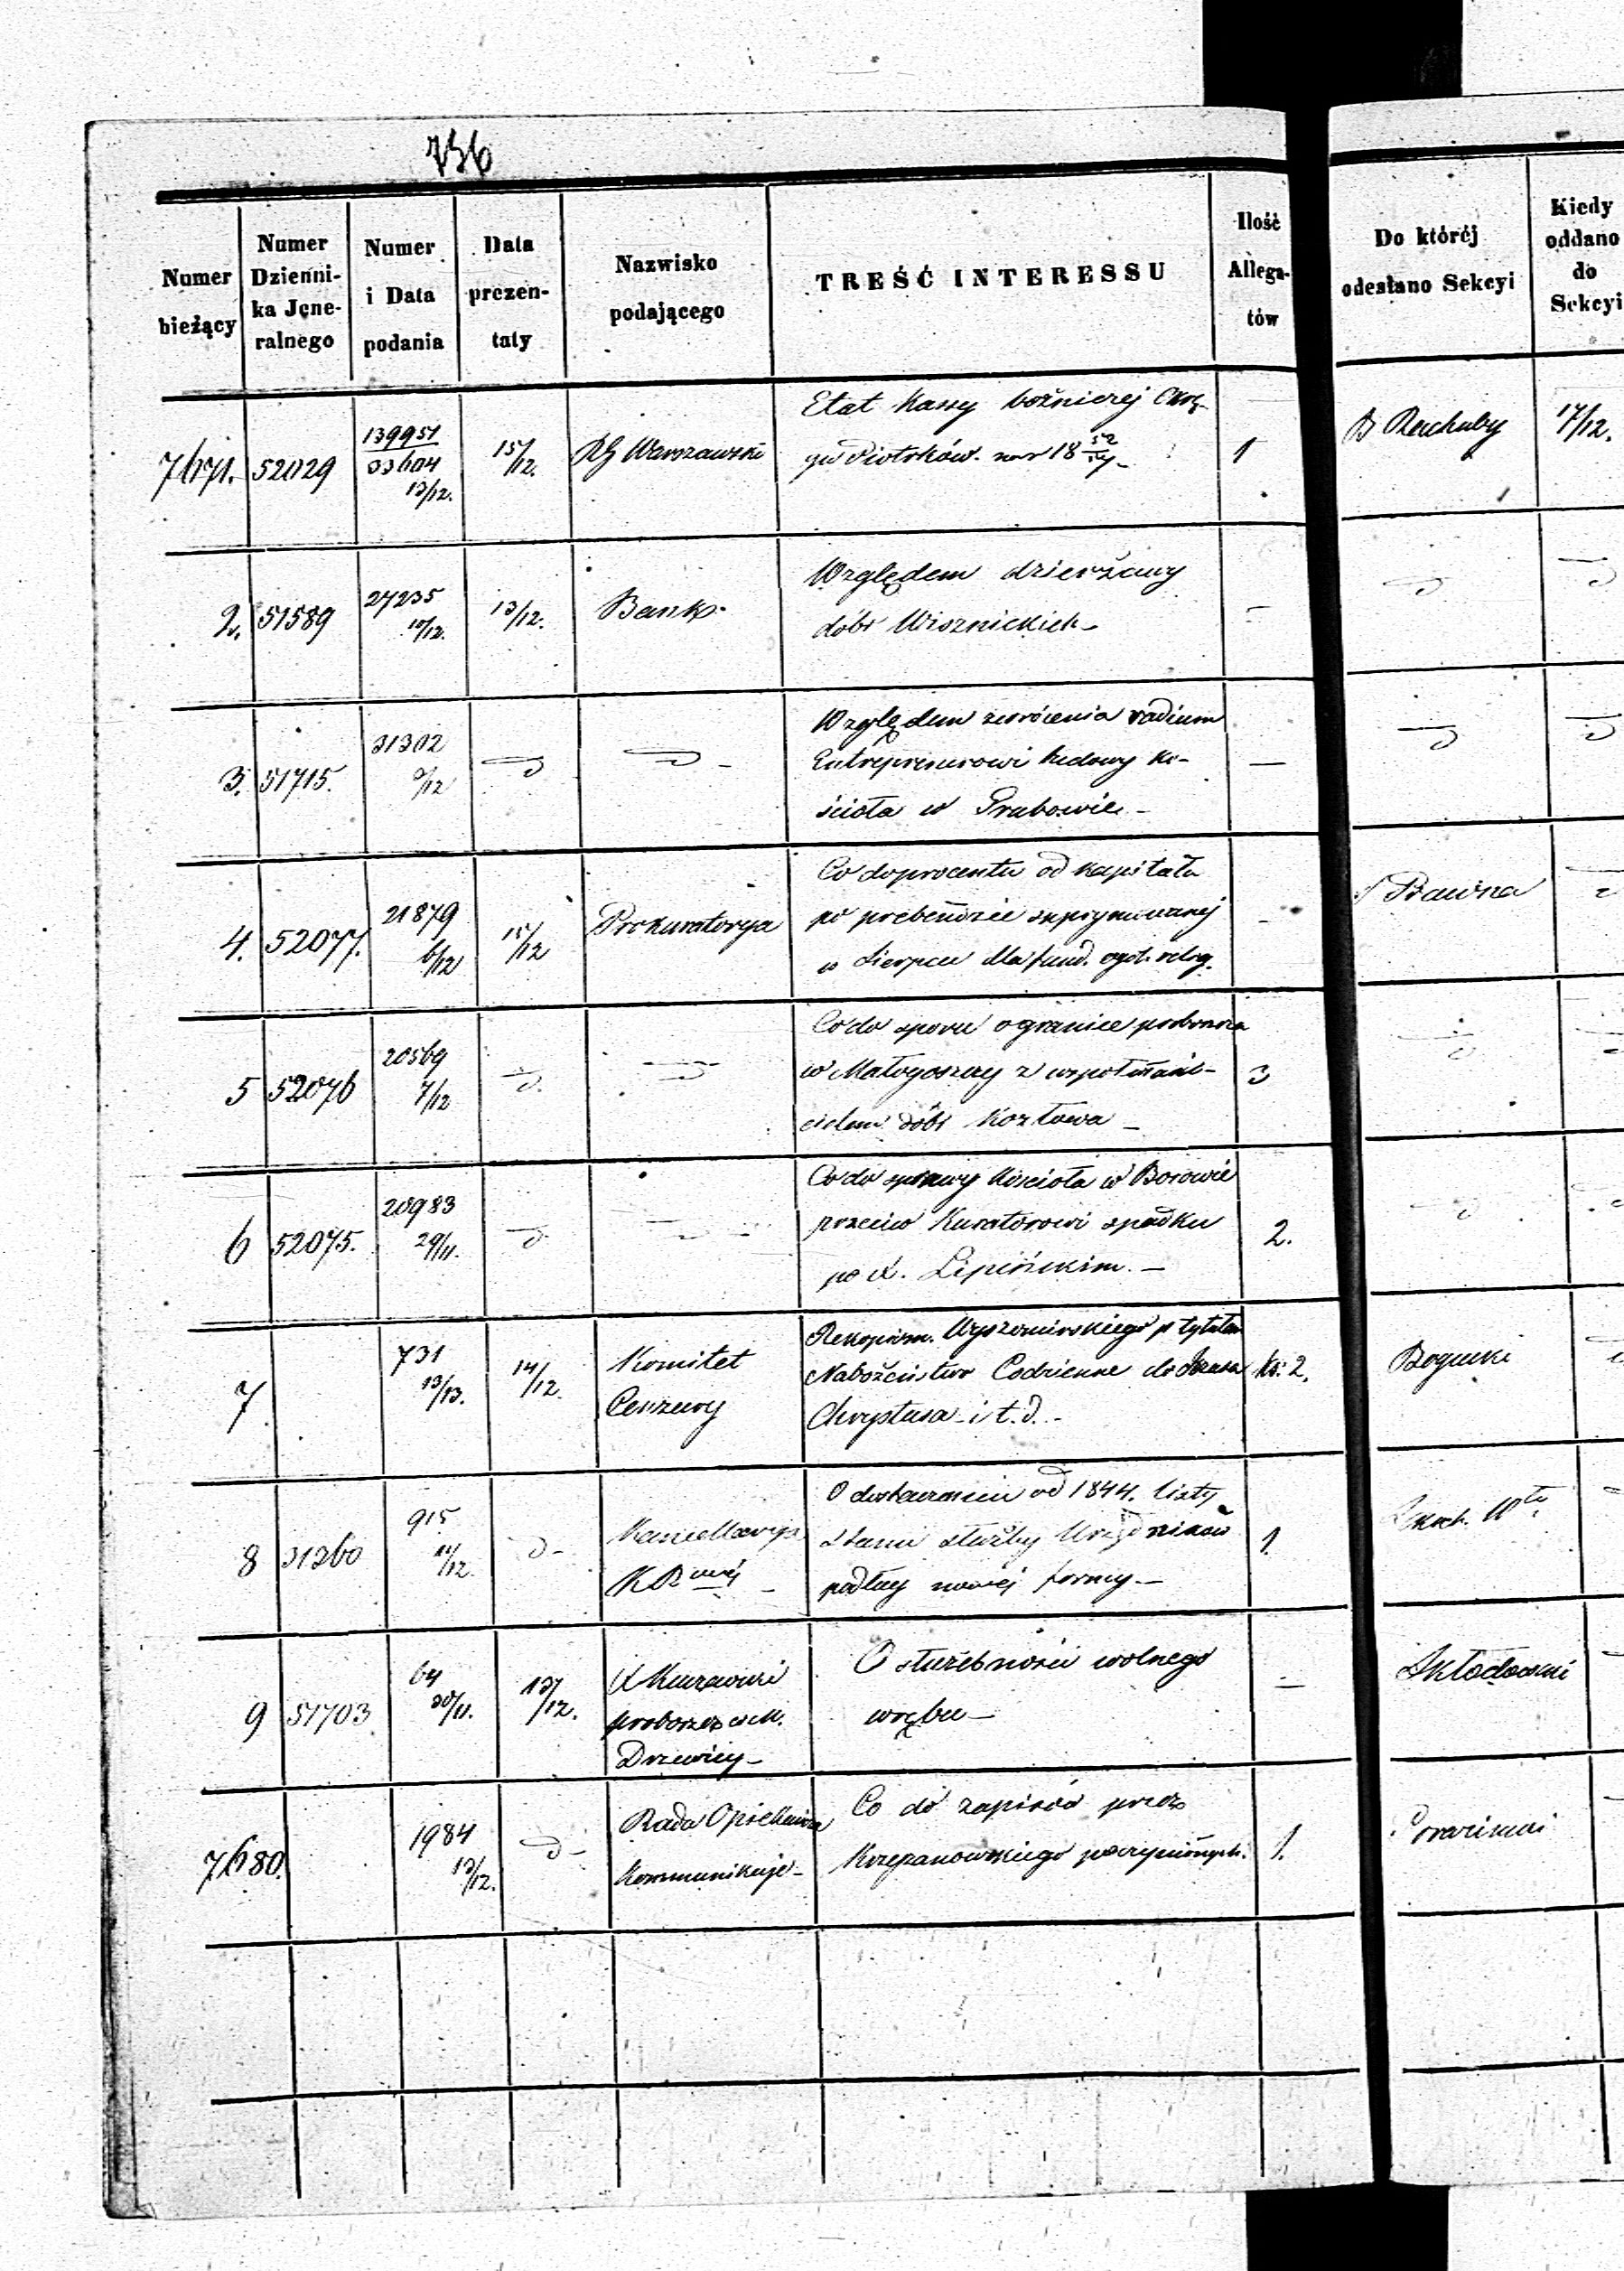 736
Numer bieżący | Numer Dzienni-ka Jene-ralnego | Numer i Data podania | Data prezen-taty | Nazwisko podającego | TREŚĆ INTERESSU | Ilość Allega-tów | Do któréj odesłano Sekcyi | Kiedy oddano do Sekcyi
7671. | 52029 | 139951 13/12. | 15/12. | RG Warszawski | Etat kassy bożniczej Okrę- | 1 | 17/12.
gu Piotrków. na 18
2. | 51589 | 27235 10/12. | 13/12. | Bank | Względem dzierżawy | –
dóbr Wisznickich –
3. | 51715. | 31302 9/12 | Względem zwrócenia vadium | —
Entreprenerowi budowy Ko-
ścioła w Grabowie –
4. | 52077. | 21879 6/12 | 15/12 | Prokuratorya | Co do procentu od kapitału | –
po prebendzie suprymowanej
w Sierpcu dla fund. ogol. relig.
5 | 52076 | 20569 7/12 | Co do sporu o granice probostwa | 3
w Małogoszczy z wspołwłaści-
cielem dóbr Kozłowa –
6 | 52075. | 20983 29/11. | Co do sprawy Kościoła w Borowie | 2.
przeciw Kuratorowi spadku
po X. Lipińskim. –
7 | 731 13/13. | 14/12. | Komitet Cenzury | Rękopism. Wyszomirskiego p tytułem | ks: 2. | Bogucki
Nabożeństwo Codzienne do Jezusa
Chrystusa i t.d. –
8 | 31260 | 915 11/12. | d – | Kancellarya | O dostarczeniu od 1844. listy | 1.
Stanu służby Urzędników
podług nowéj formy. –
9 | 51703 | 64 30/11. | 13/12. | X proboszcz Drzewicy – | O służebności wolnego | — | Skłodowski
wrębu –
7680. | 1984 13/12. | d – | Rada Opiekuńcza Kommunikuje – | Co do zapisów przez | 1.
Krzepanowskiego poczynionych.